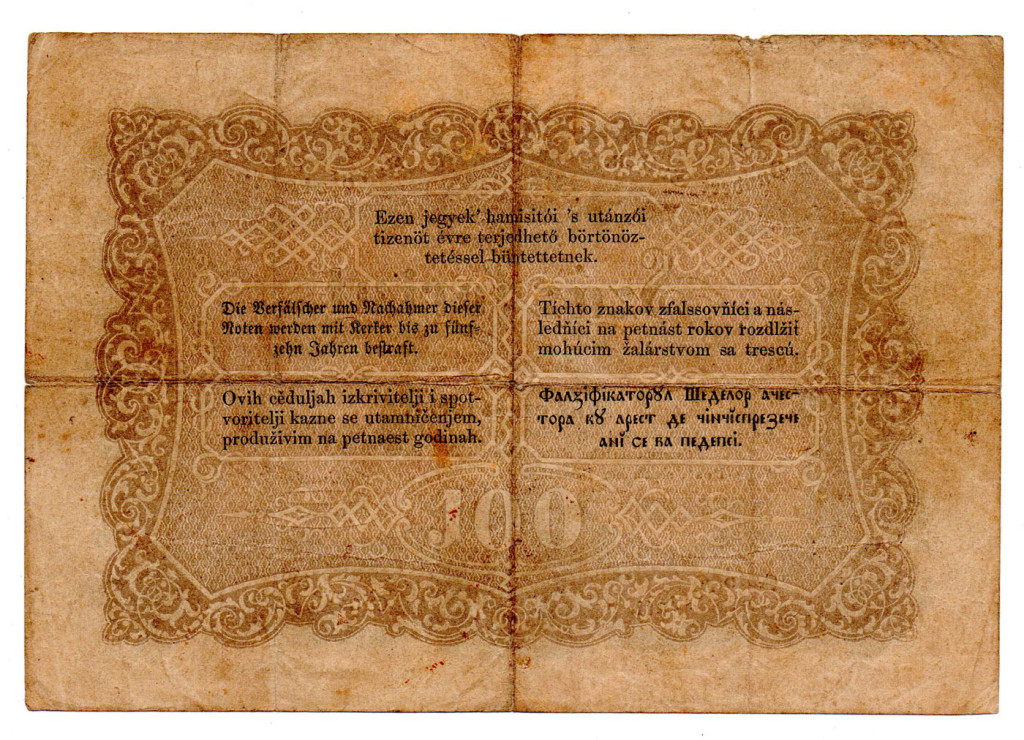 Ezen jegyek' hamisitói 's utánzói
tizenöt évre terjedhető börtönöz-
tetéssel büntettetnek.
Die Verfälscher und Nachahmer dieser
Noten werden mit Kerker bis zu fünf-
zehn Jahren bestraft.
Tíchto znakov zfalssovňíci a nás-
ledňíci na petnást rokov rozdlžiť
mohúcim žalárstvom sa trescú.
Ovih cěduljah izkrivitelji i spot-
voritelji kazne se utamničenjem,
produživim na petnaest godinah.
Фалзіфікаторꙋл Шеделор ачес-
тора кꙋ арест де чінчіспрезече
ані се ва педепсі.
100